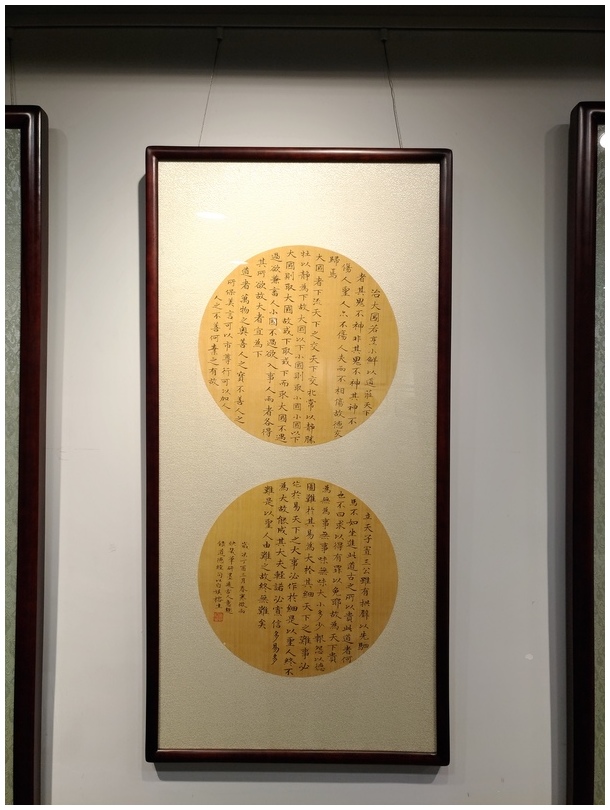 治大國若烹小鮮以道莅天下
者其鬼不神非其鬼不神其神不
傷人聖人亦不傷人夫兩不相傷故德交
歸焉
大國者下流天下之交天下交牝常以靜勝
牡以靜為下故大國以下小國則取小國小國以下
大國則取大國故或下取或下而取大國不過
過欲兼畜人小國不過欲入事人兩者各得
其所欲故大者宜為下
道者萬物之奧善人之寶不善人之
所保美言可以市尊行可以加人
人之不善何棄之有故
立天子置三公雖有拱璧以先駟
馬不如坐進此道古之所以貴此道者何
也不曰求以得有罪以免耶故為天下貴
為無為事無事味無味大小多少報怨以德
圖難於其易為大於其細天下之難事必
作於易天下之大事必作於細是以聖人終不
為大故能成其大夫輕諾必寡信多易多
難是以聖人由難之故終無難矣
歲次丁酉三月